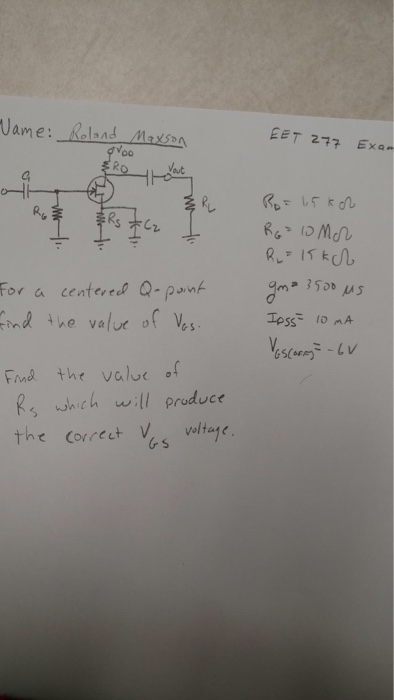 Name: Roland Maxson
EET 277 Exam
VDD
RD
Vout
C1
RG
RS
C2
RL
RD = 1.5 kΩ
RG = 10 MΩ
RL = 15 kΩ
gm = 3500 μS
IDSS = 10 mA
VGS(OFF) = -6V
For a centered Q-point
find the value of VGS.
Find the value of
RS which will produce
the correct VGS voltage.